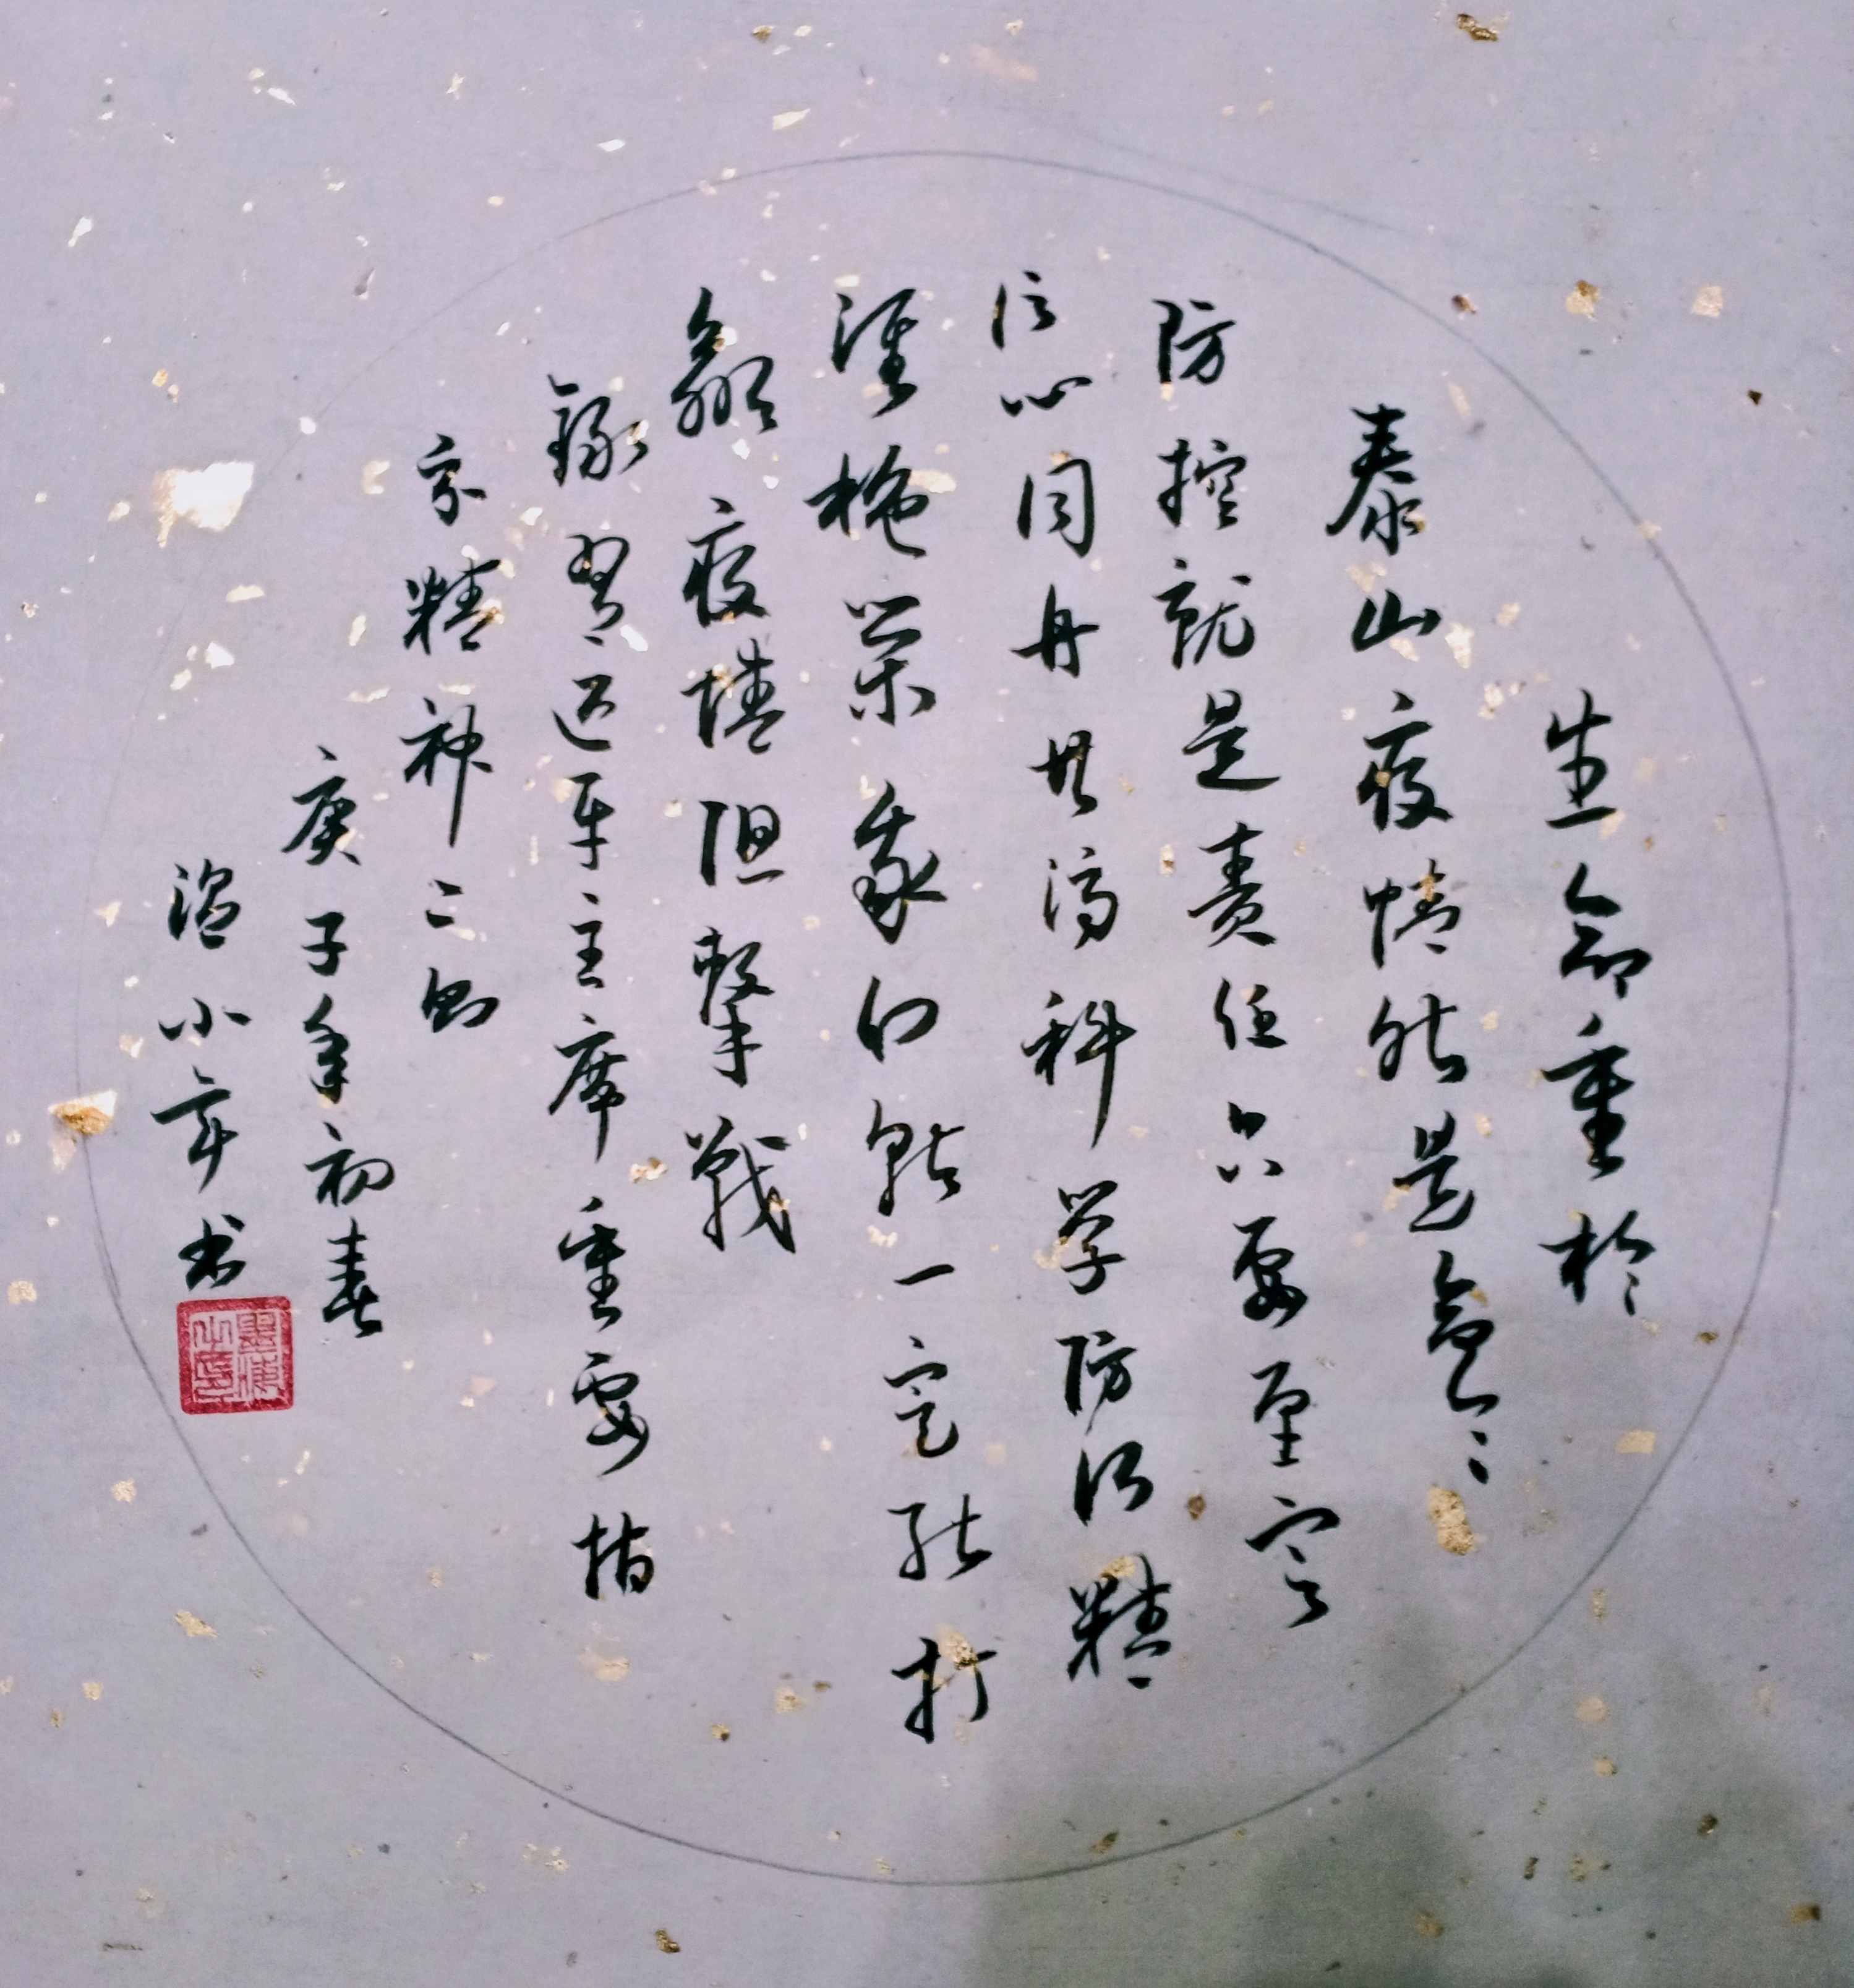 生命重於
泰山疫情就是命令
防控就是责任只要坚定
信心同舟共济科学防治精
准施策我们就一定能打
赢疫情阻擊戰
录習近平主席重要指
示精神二则
庚子年初春
温小京书